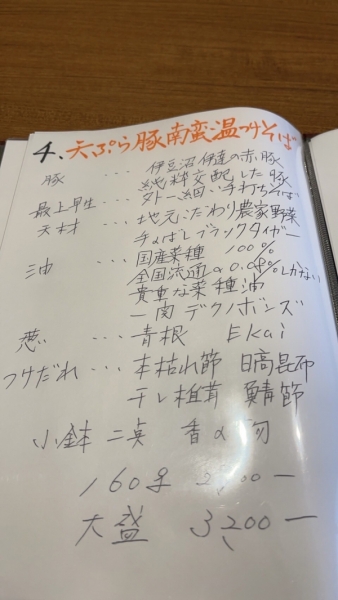 4、天ぷら豚南蛮温つけそば
豚 ・・・ 伊豆沼伊達の赤豚
純粋交配した豚
最上早生 ・・・ 外一細い手打ちそば
天材 ・・・ 地元こだわり農家野菜
手のばしブラックタイガー
油 ・・・ 国産菜種 100%
全国流通の0.04%しかない
貴重な菜種油
一関デクノボンズ
葱 ・・・ 青根 Ekai
つけだれ ・・・ 本枯れ節 日高昆布
干し椎茸 鯖節
小鉢 二点 香の物
160g
大盛 3,200ー